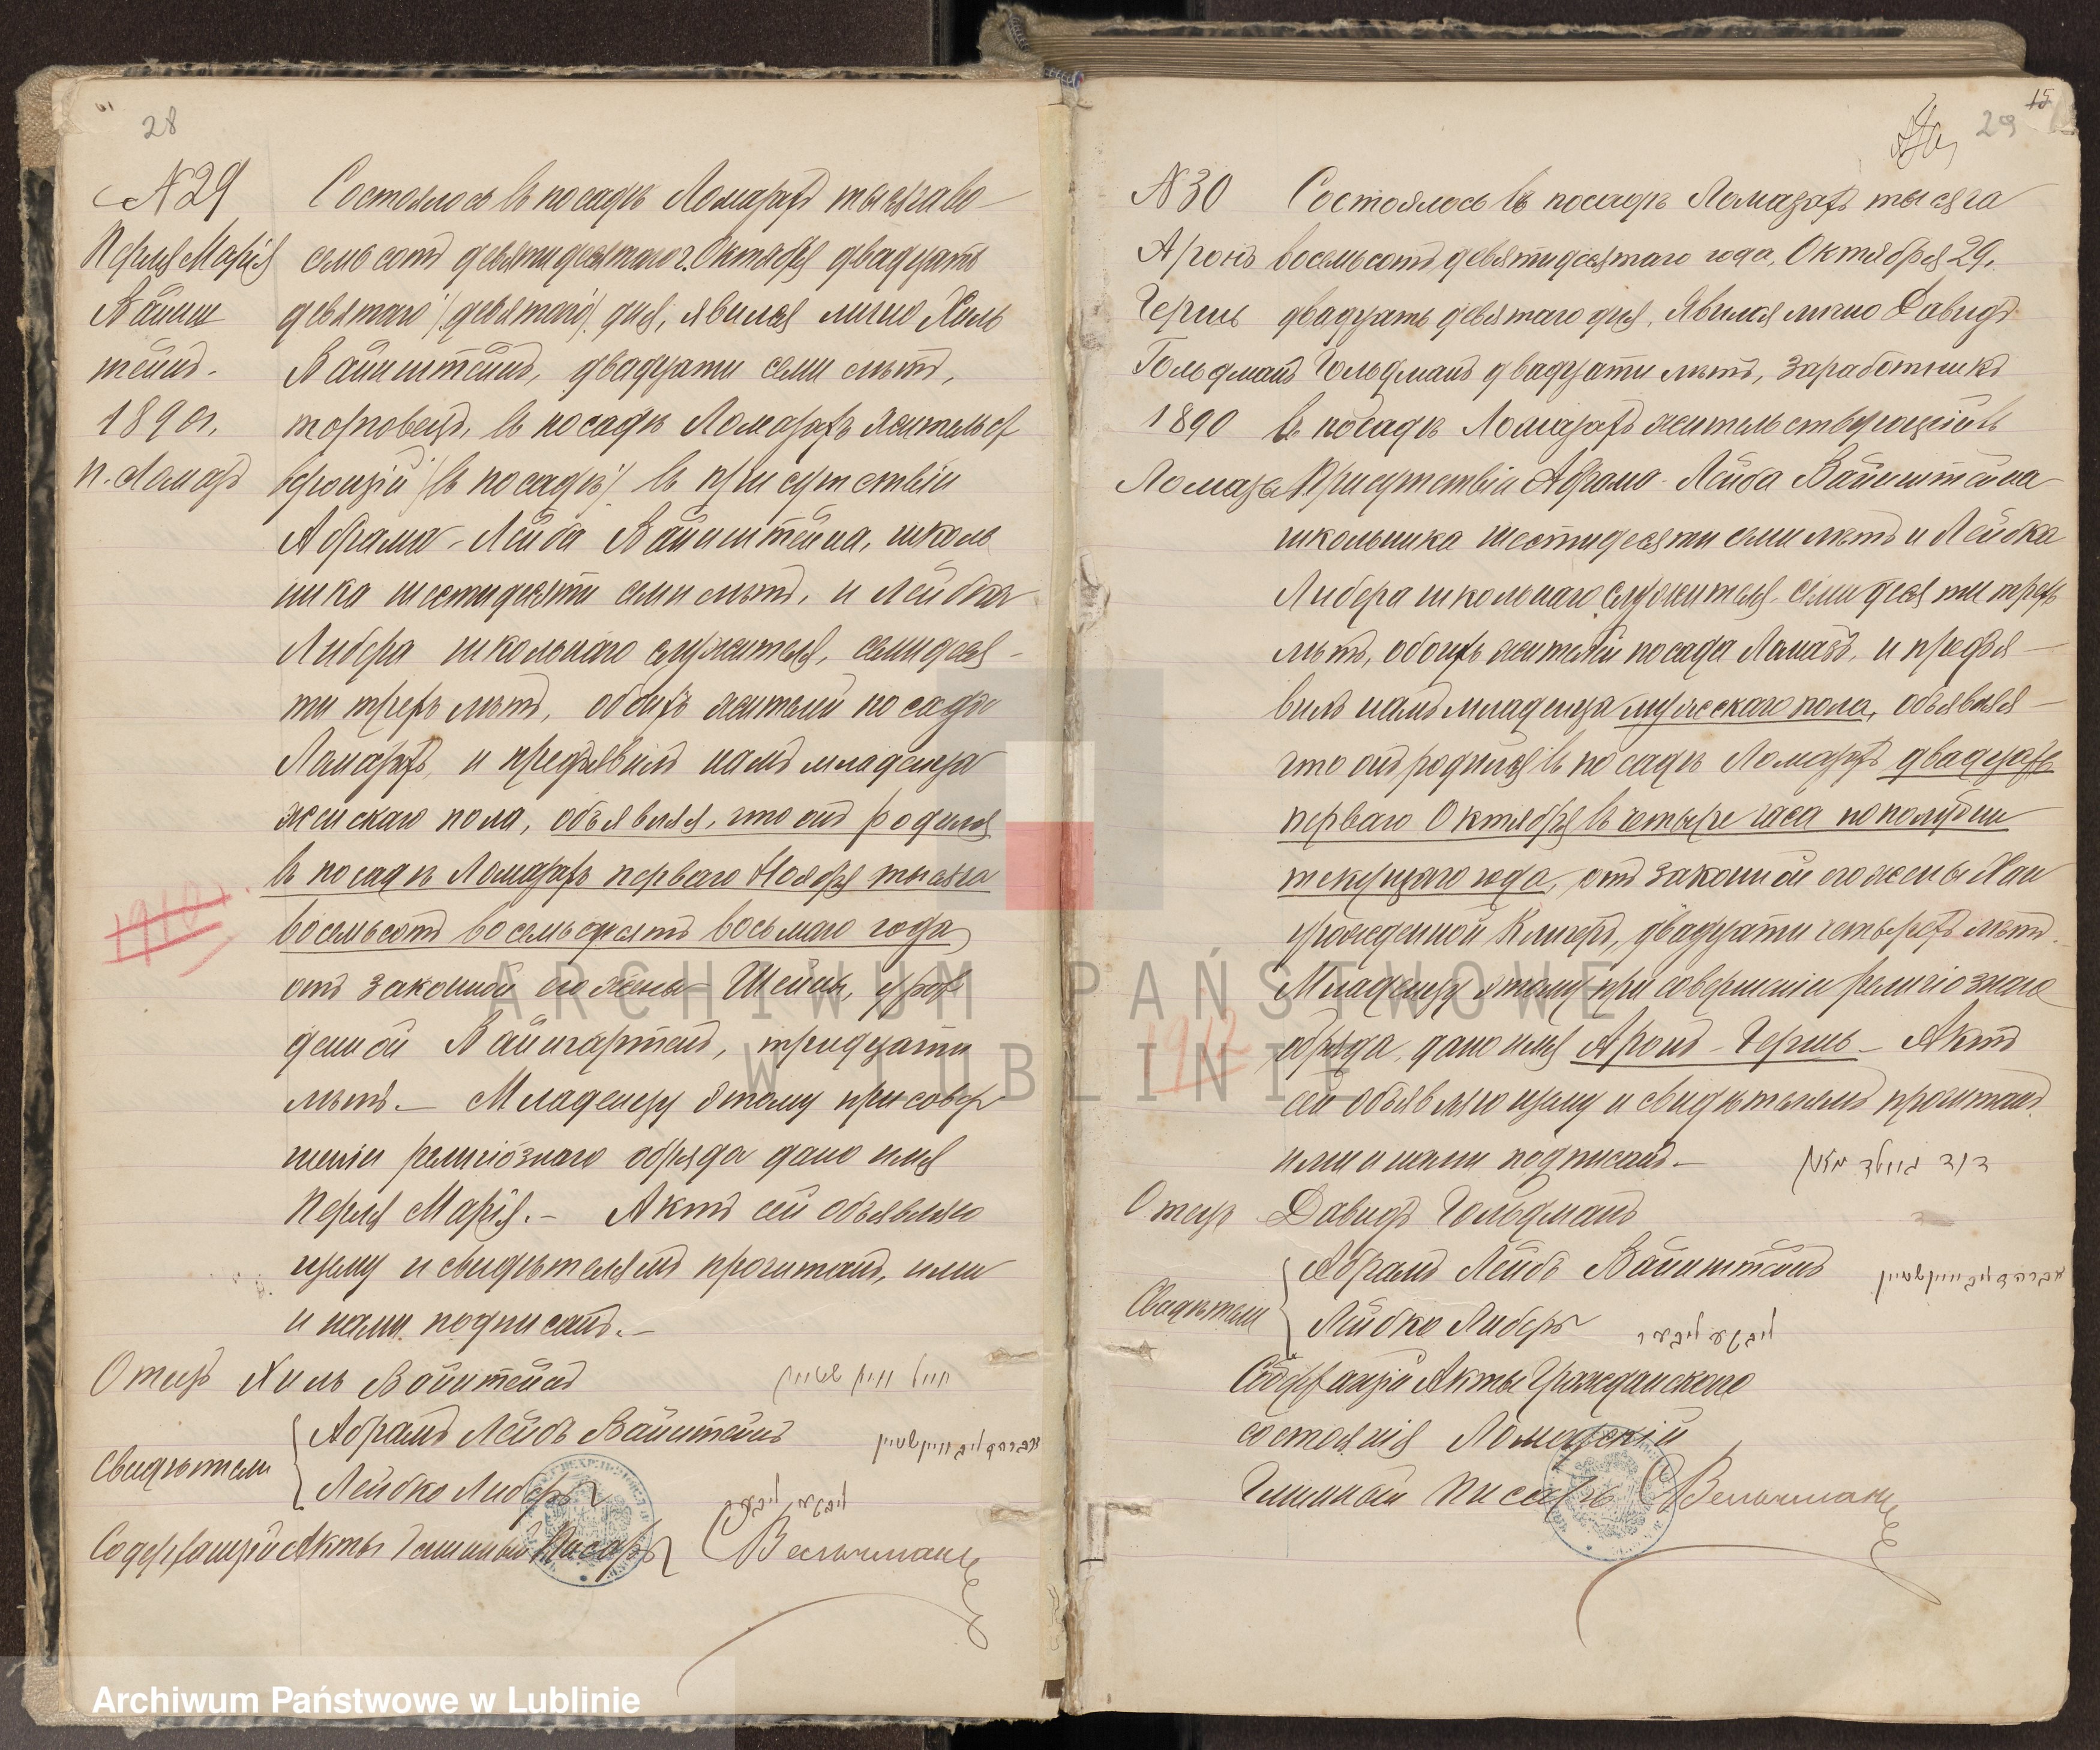 28
№29
Перля Марiя
Вайнш
тейнъ.
1890г.
п. Ломазъ
Состоялось въ посадѣ Ломазахъ тысяча во-
семьсотъ девятидесятаго г. Октября двадцать
девятаго /девятаго/ дня, явился лично Хиль
Вайнштейнъ, двадцати семи лѣтъ,
торговецъ, въ посадѣ Ломазахъ жительст
вующiй /въ посадѣ/ въ присутствiи
Абрама-Лейба Вайнштейна, школь
ника шестидесяти семи лѣтъ, и Лейбка
Либера школьнаго служителя, семидеся-
ти трехъ лѣтъ, обоихъ жителей посада
Ломазъ, и предъявилъ намъ младенца
женскаго пола, объявляя, что онъ родился
въ посадѣ Ломазахъ перваго Ноября тысяча
восемьсотъ восемьдесятъ восьмаго года
отъ законной его жены Шейны, урож
денной Вайнгартенъ, тридцати
лѣтъ.- Младенцу этому при совер
шенiи религiознаго обряда дано имя
Перля Марiя.- Актъ сей объявляю
щему и свидѣтелямъ прочитанъ, ими
и нами подписанъ.-
Отецъ Хиль Вайнтейнъ חיל ווין שטיין
Свидѣтели
Абрамъ Лейбъ Вайнтейнъ אברהם ליב וויינשטיין
Лейбко Либеръ ליבקע ליבער
Содержащiй Акты Гминный Писарь
1910
29
15
№30
Аронъ
Гершъ
Гольдманъ
1890
Ломазы
Состоялось въ посадѣ Ломазахъ тысяча
восемьсотъ девятидесятаго года, Октября 29.
двадцать девятаго дня, явился лично Давидъ
Гольдманъ двадцати лѣтъ, заработникъ
въ посадѣ Ломазахъ жительствующiй въ
присутствiи Абрама-Лейба Вайнштейна
школьника шестидесяти семи лѣтъ и Лейбка
Либера школьнаго служителя, семидесяти трехъ
лѣтъ, обоихъ жителей посада Ломазъ, и предъя-
вилъ намъ младенца мужескаго пола, объявляя-
что онъ родился въ посадѣ Ломазахъ двадцать
перваго Октября въ четыре часа пополудни
текущаго года, отъ законной его жены Хаи
урожденной Клигеръ, двадцати четырехъ лѣтъ.
Младенцу этому при совершенiи религiознаго
обряда, дано имя Аронъ-Гершъ- Актъ
сей объявляющему и свидѣтелямъ прочитанъ
ими и нами подписанъ.- דוד גוילד מאן
Отецъ Давидъ Гольдманъ
Свидѣтели
Абрамъ Лейбъ Вайнштейнъ אברהם ליב וויינשטיין
Лейбко Либеръ ליבקע ליבער
Содержащiй Акты Гражданскаго
состоянiя Ломазскiй
Гминный Писарь
1912
ARCHIWUM PAŃSTWOWE
W LUBLINIE
Archiwum Państwowe w Lublinie